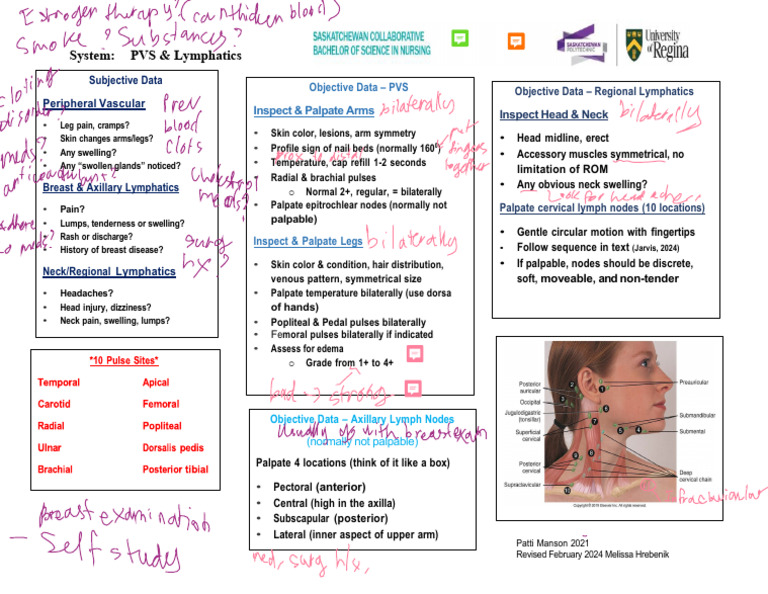 Estrogen therapy? (can thicken blood)
Smoke? Substances?
System: PVS & Lymphatics
SASKATCHEWAN COLLABORATIVE
BACHELOR OF SCIENCE IN NURSING
SASKATCHEWAN
POLYTECHNIC
University
of Regina
Subjective Data
Peripheral Vascular
Leg pain, cramps?
Skin changes arms/legs?
Any swelling?
Any "swollen glands" noticed?
Breast & Axillary Lymphatics
Pain?
Lumps, tenderness or swelling?
Rash or discharge?
History of breast disease?
Neck/Regional Lymphatics
Headaches?
Head injury, dizziness?
Neck pain, swelling, lumps?
clotting
disorder?
meds?
anticoagulant?
adhere
to meds?
Prev
blood
clots
Cholesterol
meds?
surg
hx?
*10 Pulse Sites*
Temporal Apical
Carotid Femoral
Radial Popliteal
Ulnar Dorsalis pedis
Brachial Posterior tibial
Breast examination
- Self study
Objective Data – PVS
Inspect & Palpate Arms bilaterally
Skin color, lesions, arm symmetry
Profile sign of nail beds (normally 160°)
put fingers together
prox to distal
Temperature, cap refill 1-2 seconds
Radial & brachial pulses
Normal 2+, regular, = bilaterally
Palpate epitrochlear nodes (normally not
palpable)
Inspect & Palpate Legs bilaterally
Skin color & condition, hair distribution,
venous pattern, symmetrical size
Palpate temperature bilaterally (use dorsa
of hands)
Popliteal & Pedal pulses bilaterally
Femoral pulses bilaterally if indicated
Assess for edema
Grade from 1+ to 4+
Objective Data – Axillary Lymph Nodes
Usually up with breast exam
(normally not palpable)
Palpate 4 locations (think of it like a box)
Pectoral (anterior)
Central (high in the axilla)
Subscapular (posterior)
Lateral (inner aspect of upper arm)
med, surg hx,
Objective Data – Regional Lymphatics
Inspect Head & Neck bilaterally
Head midline, erect
Accessory muscles symmetrical, no
limitation of ROM
Any obvious neck swelling?
Look for headaches
Palpate cervical lymph nodes (10 locations)
Gentle circular motion with fingertips
Follow sequence in text (Jarvis, 2024)
If palpable, nodes should be discrete,
soft, moveable, and non-tender
Posterior
auricular
Occipital
Jugulodigastric
(tonsillar)
Superficial
cervical
Posterior
cervical
Supraclavicular
Preauricular
Submandibular
Submental
Deep
cervical chain
1
2
3
4
5
6
7
8
9
10
Copyright © 2019 Elsevier Inc. All rights reserved.
Patti Manson 2021
Revised February 2024 Melissa Hrebenik